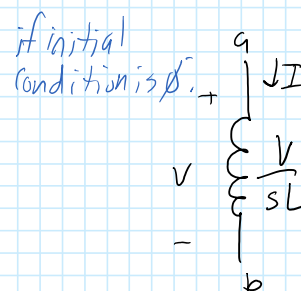 if initial
condition is ∅.
a
+
↓I
V
V
sL
−
b